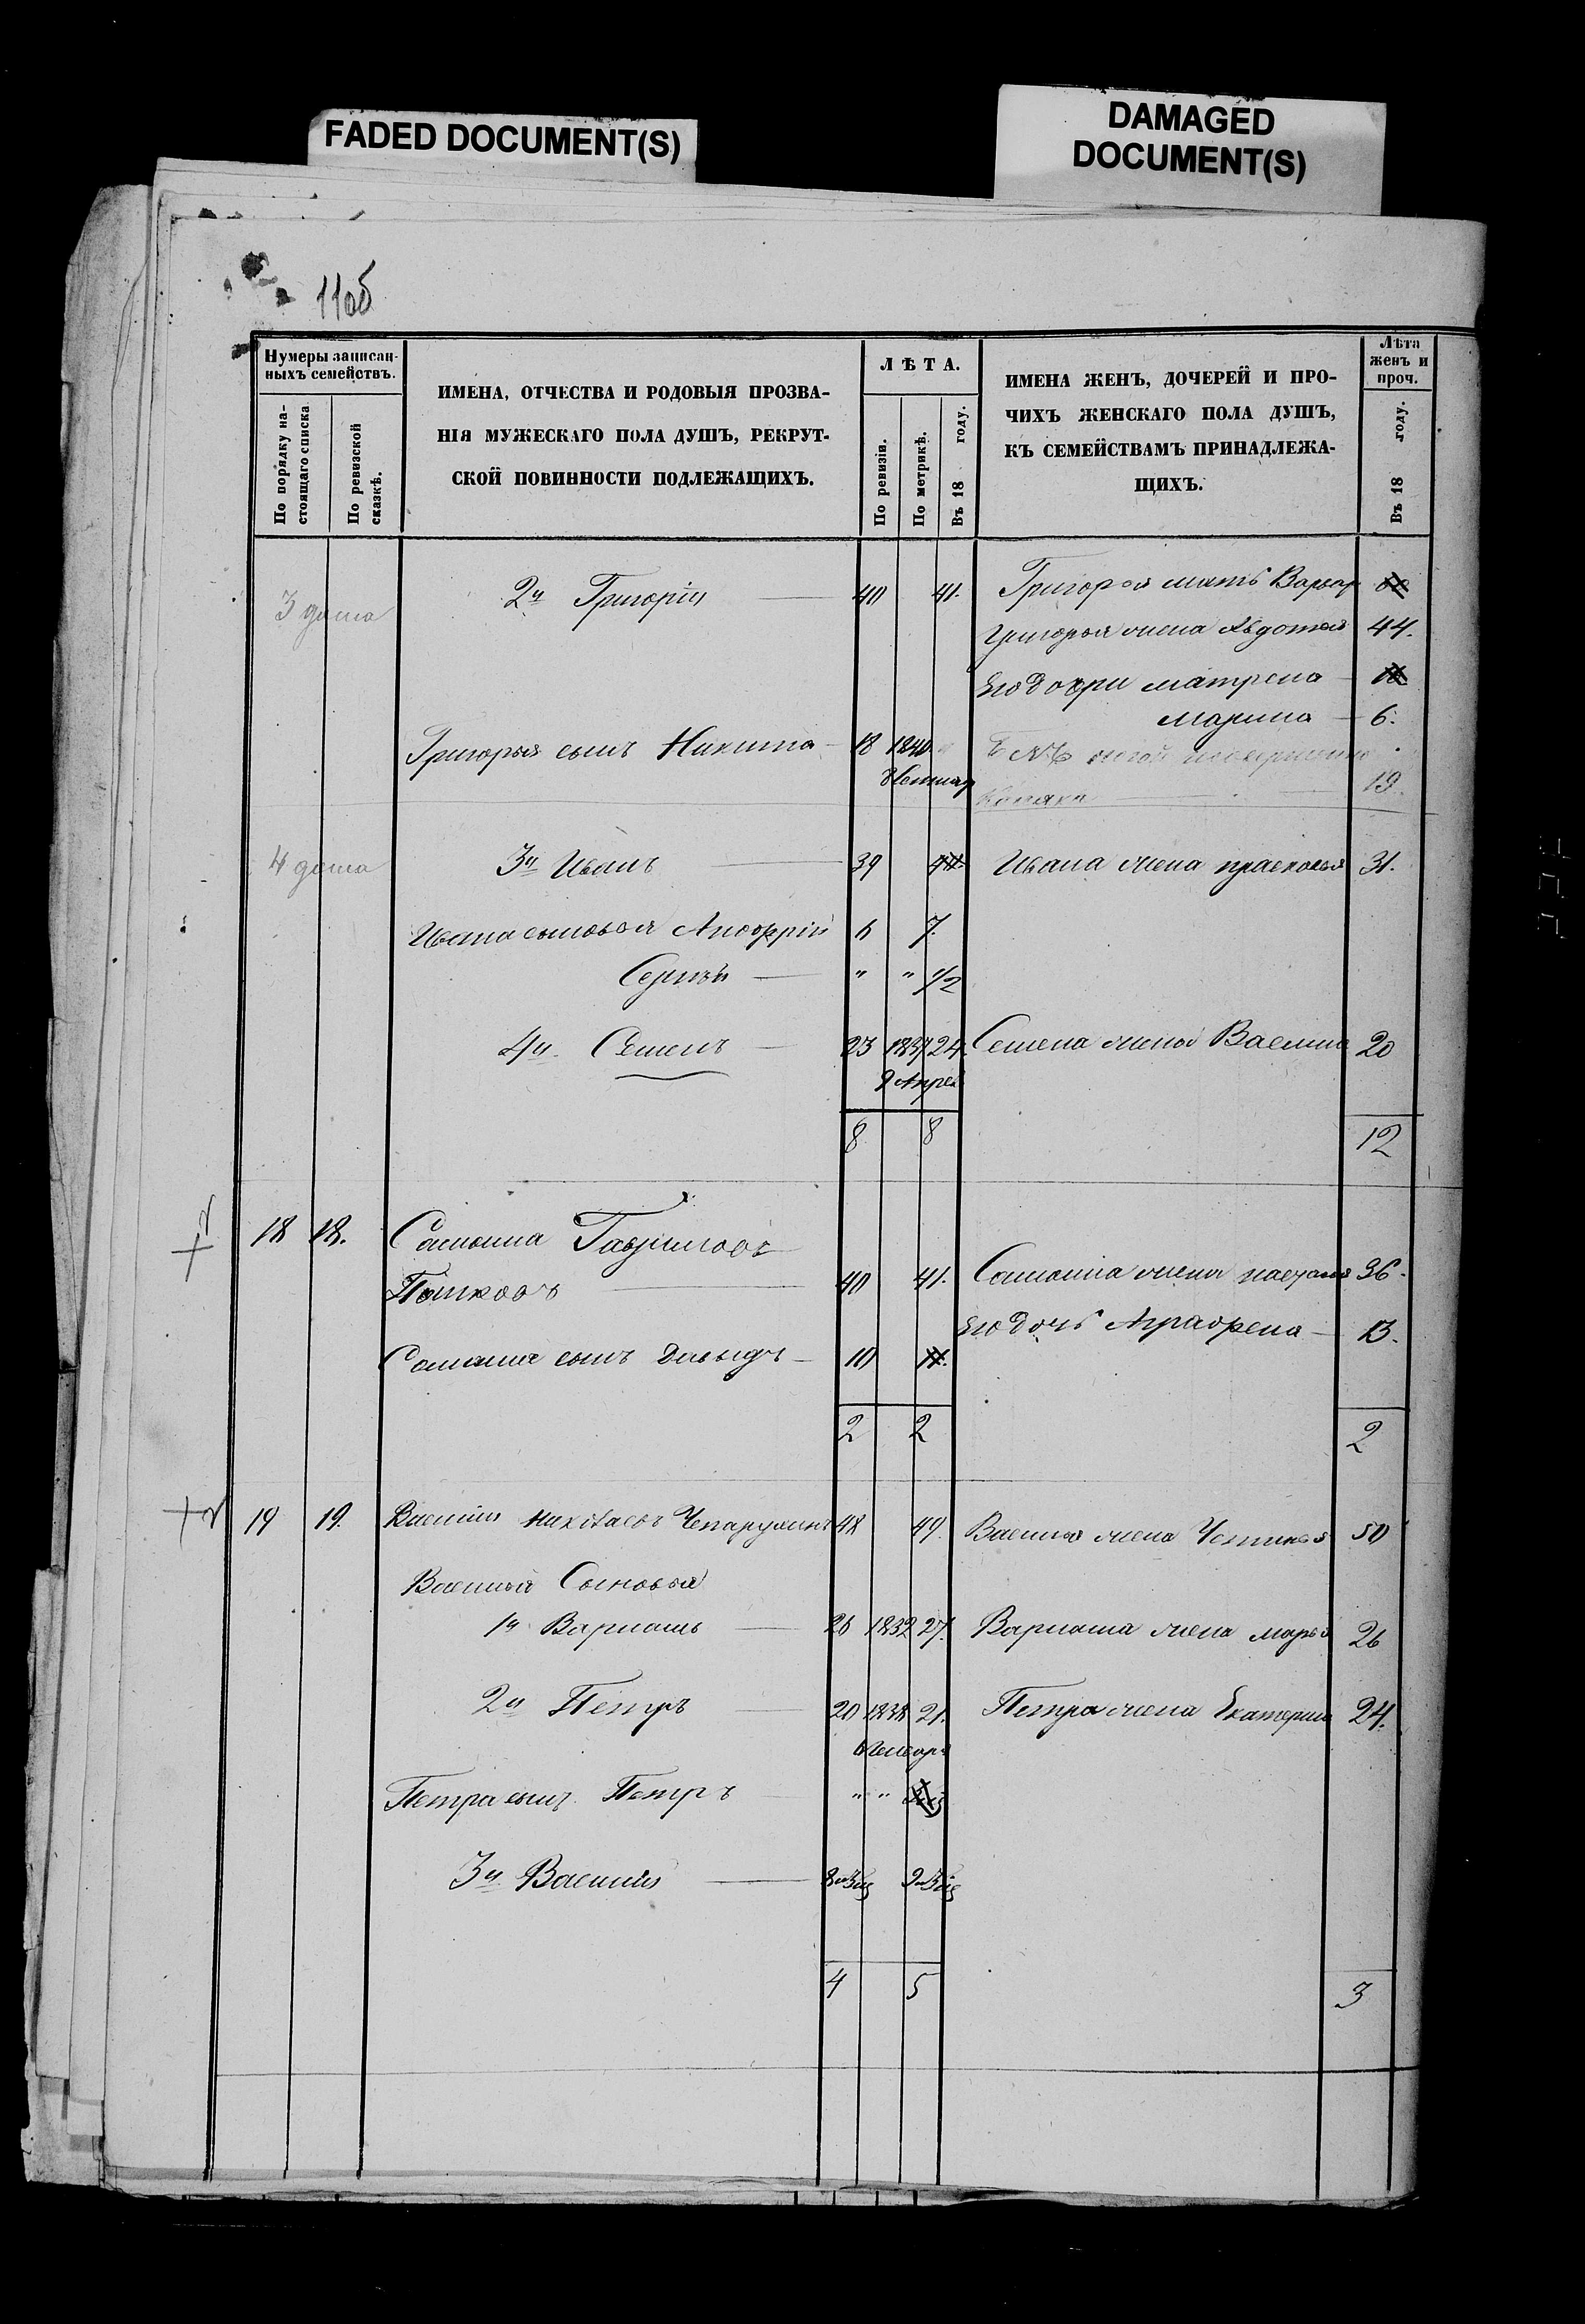 FADED DOCUMENT(S)
DAMAGED
DOCUMENT(S)
11об
Нумеры записан-
ныхъ семействъ.
По порядку на-
стоящаго списка
По ревизской
сказкѣ.
ИМЕНА, ОТЧЕСТВА И РОДОВЫЯ ПРОЗВА-
НІЯ МУЖЕСКАГО ПОЛА ДУШЪ, РЕКРУТ-
СКОЙ ПОВИННОСТИ ПОДЛЕЖАЩИХЪ.
ЛѢТА.
По ревизіи.
По метрикѣ.
Въ 18 году.
ИМЕНА ЖЕНЪ, ДОЧЕРЕЙ И ПРО-
ЧИХЪ ЖЕНСКАГО ПОЛА ДУШЪ,
КЪ СЕМЕЙСТВАМЪ ПРИНАДЛЕЖА-
ЩИХЪ.
Лѣта
женъ и
проч.
Въ 18 году.
3 дома 2й Григорій 40 41. Григорья мать Варвар
Григорья жена Авдотья 44.
Его дочри Матрена
Марина 6.
Григорья сынъ Никита 18 1840
19.
4 дома 3й Иванъ 39 Ивана жена Прасковья 31.
Ивана сыновья 6 7.
Сергѣй " " 1/2
4й Семенъ 23 1837 24. Семена жена Васлиса 20
9 Апрел
8 8 12
18 18. Самоила Гавриловъ
40 41. Самоила жена 36.
Его дочь Аграфена 13.
Самоила сынъ Давыдъ 10
2 2 2
19 19. Василій Чепарухинъ 48 49. Василья жена Устинья 50
Василья Сыновья
1й Варламъ 26 1832 27. Варлама жена Марья 26
2й Петръ 20 1838 21. Петра жена Екатерина 24.
Генваря
Петра сынъ Петръ " "
3й Василій
4 5 3